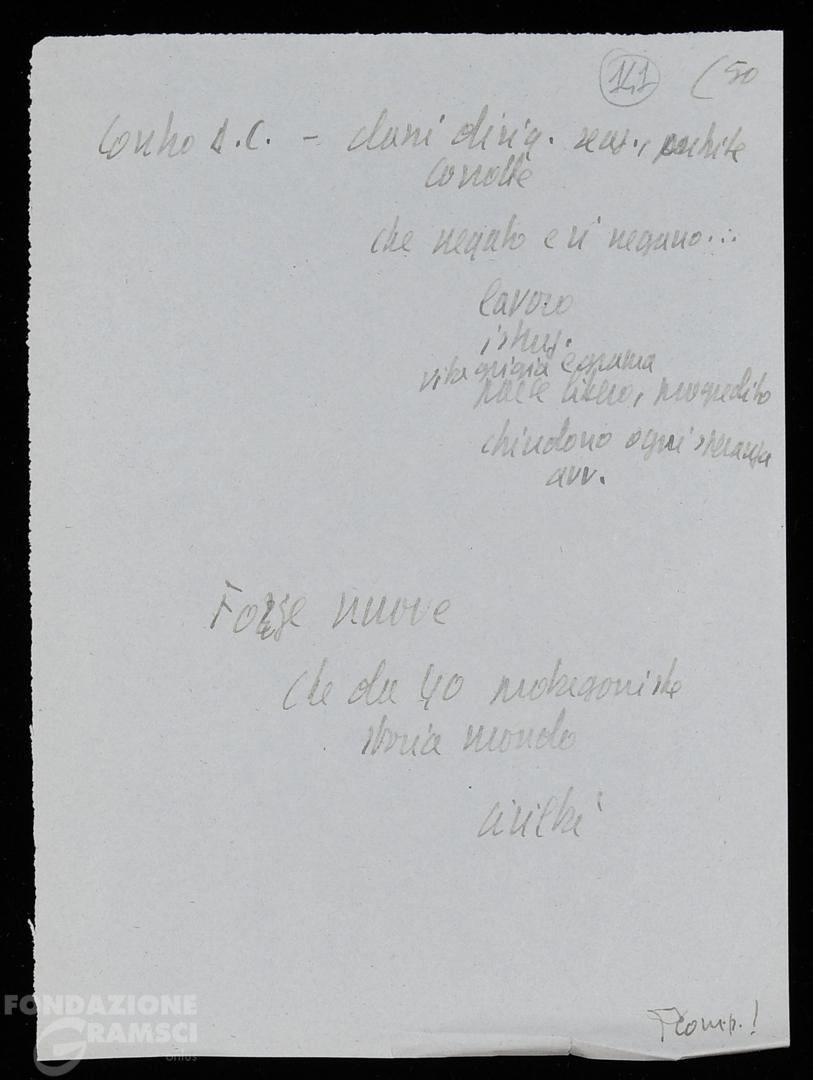 141 (50
Contro D.C. - classi dirig. reaz., putride
corrotte
che negato e vi negano...
lavoro
istruz.
vita grigia e grama
paese libero, progredito
chiudono ogni speranza
avv.
Forze nuove
che da 40 protagoniste
storia mondo
civiltà
comp.!
FONDAZIONE
GRAMSCI
onlus